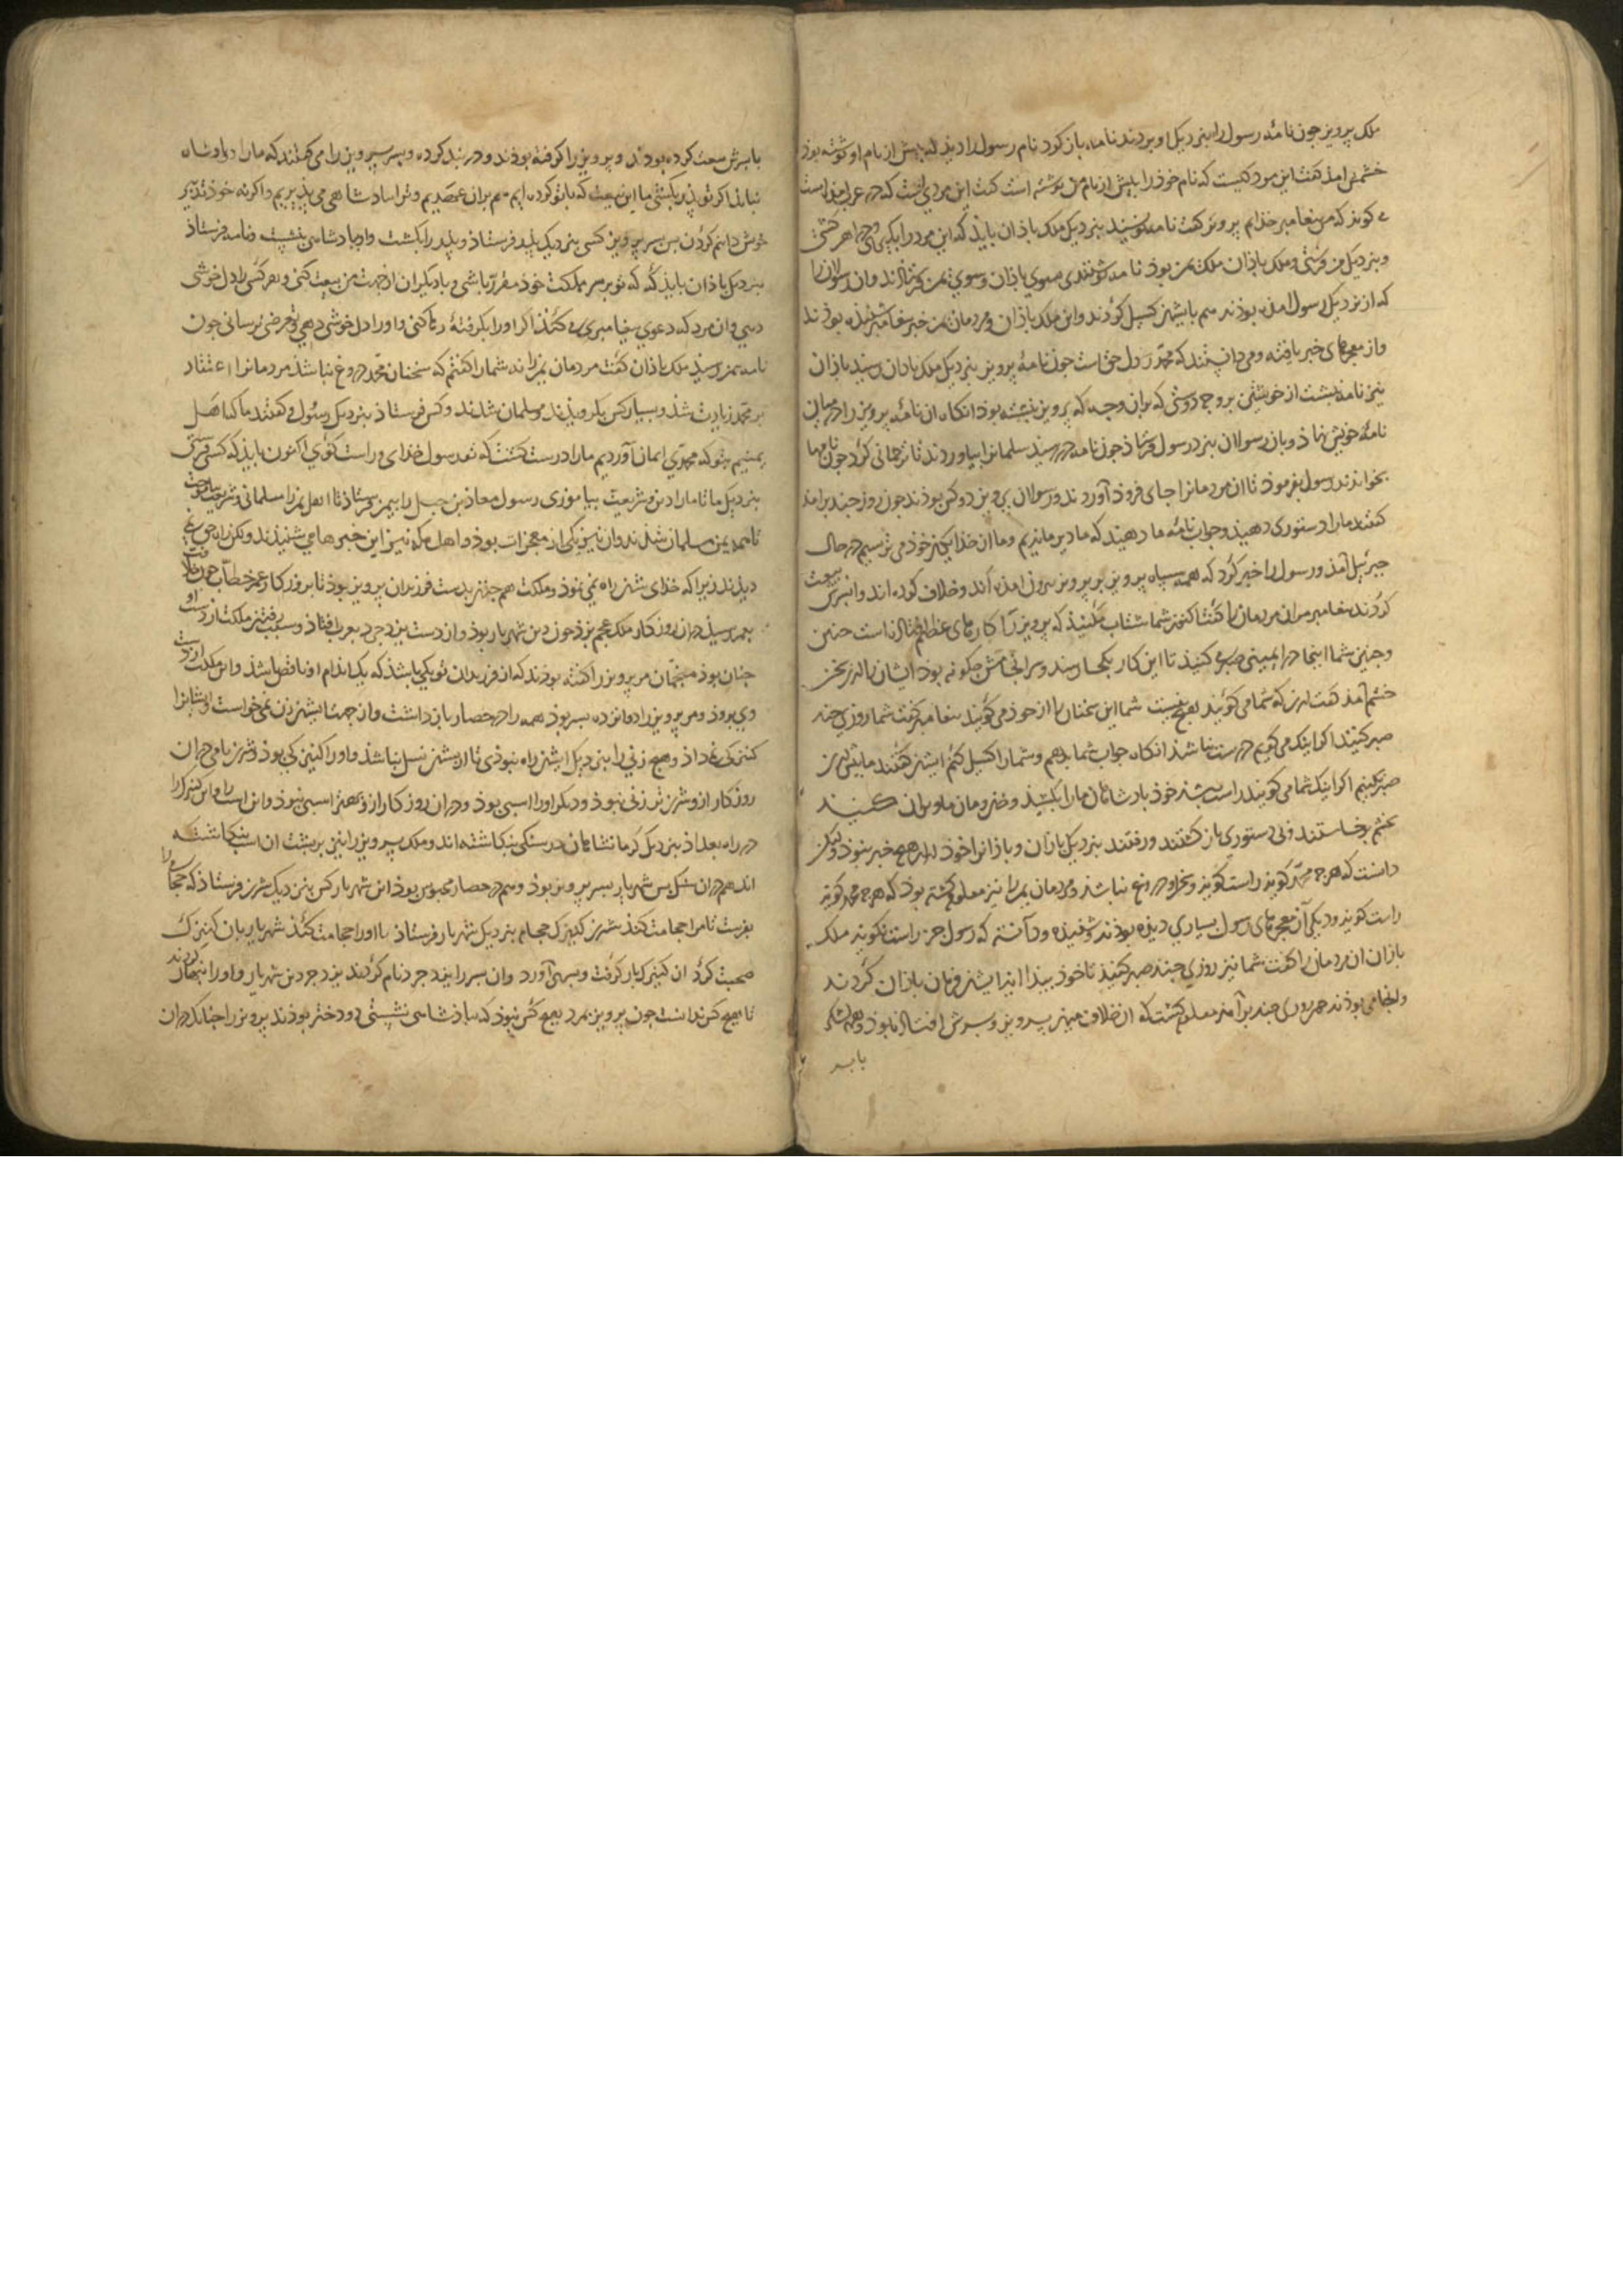 ملک پرویز چون نامهٔ رسول را بنزدیک او بردند نامه باز کرد نام رسول را دید که پیش از نام او نوشته بوذ
خشمش امذ کفت این مرد کیست که نام خوذ را بیش از نام من نوشته است کفت این مردی است که در عرب امذه است
می کویذ که من پیغامبر خذایم پرویز کفت نامه نویسید بنزدیک ملک باذان بایذ که این مرد را
و بنزدیک من فرستی و ملک باذان ملک یمن بوذ نامه نوشتند سوی باذان و سوی یمن فرستاذند و ان رسولان را
که از نزدیک رسول امده بوذند هم با ایشان کسیل کردند و این ملک باذان و مردمان یمن خبر پیغامبر شنیده بوذند
و از معجزهای خبر یافته و می دانستند که محمد رسول حق است چون نامهٔ پرویز بنزدیک ملک باذان رسید باذان
نیز نامه نبشت از خویشتن بر وجه دوستی که بران وجه که پرویز نبشته بوذ انکاه ان نامهٔ پرویز را در میان
نامهٔ خویش نهاذ و بان رسولان بنزد رسول فرستاذ چون نامه در رسید سلمان را بیاوردند تا ترجمانی کرد چون نامها
بخواندند رسول بفرموذ تا ان مردمانرا جای فروذ آوردند و رسولان پرویز دو کس بوذند چون روز چند برامذ
کفتند ما را دستوری دهید و جواب نامهٔ ما دهید که ما دیر ماندیم و ما از خذایکان خوذ می ترسیم در حال
جبرئیل آمذ و رسول را خبر کرد که همه سپاه پرویز بر پرویز بیرون امده اند و خلاف کرده اند و با پسرش بیعت
کردند پیغامبر مران مردمان را کفت اکنون شما شتاب مکنید که پرویز را کارهای عظیم افتاذه است چنین
و چنین شما اینجا در ایمنی صبر می کنید تا این کار بکجا رسد و سرانجامش چکونه بوذ ایشان را ازین سخن
خشم آمذ کفتند این که شما می کوئید هیچ نیست شما این سخنان را از خوذ می کوئید پیغامبر کفت شما روزی چند
صبر کنید اکر اینک می کویم درست نباشذ انکاه جواب شما بدهم و شما را کسیل کنم ایشان کفتند ما بیش ازین
صبر نکنیم اکر اینک شما می کویید راست باشذ خوذ باذشاهان ما را بکشند و خان و مان ما ویران کنند
بخشم برخاستند و بی دستوری باز کشتند و رفتند بنزدیک باذان و باذانرا خوذ ازین هیچ خبر نبوذ ولیکن
دانست که هرچه محمد کویذ راست کویذ و سخن او دروغ نباشذ و مردمان یمن را نیز معلوم کشته بوذ که هرچه محمد کویذ
راست کویذ و دیکر آن معجزهای رسول بسیاری دیذه بوذند و شنیذه و دانسته که رسول جز راست نکویذ ملک
باذان ان مردمان را کفت شما نیز روزی چند صبر کنید تا خوذ پیذا ایذ ایشان فرمان باذان کردند
و انجا می بوذند چون روزی چند برآمذ معلوم کشت که ان خلاف میان پرویز و پسرش افتاذه بوذ و همه لشکر
با پسر
با پسرش بیعت کرده بوذند و پرویز را کرفته بوذند و در بند کرده و پسر پرویز را می کفتند که ما را دو پاذشاه
نباید اکر تو پذر بکشتی ما این بیعت که با تو کرده ایم هم بران عهدیم و ترا بپاذشاهی می پذیریم و اکر نه خوذ تدبیر
خویش دانیم کردن پس پسر پرویز کسی بنزدیک پذر فرستاذ و پذر را بکشت و او بپاذشاهی بنشست و نامه فرستاذ
بنزدیک باذان بایذ که تو بر سر مملکت خوذ مقرر باشی و با دیکران از جهت من بیعت کنی و هر کسی را دل خوشی
دهی و ان مرد که دعوی پیغامبری می کنذ اکر او را بکرفتهٔ رها کنی و او را دل خوشی دهی و تعرضی نرسانی چون
نامه بیمن رسید ملک باذان کفت مردمان یمن را نه شما را کفتم که سخنان محمد دروغ نباشذ مردمانرا اعتقاد
بر محمد زیادت شذ و بسیار کس بکرویذند و مسلمان شدند و کس فرستاذ بنزدیک رسول و کفتند ما که اهل
یمنیم بتو که محمدی ایمان آوردیم ما را درست کشت که تو رسول خذای و راست کوی اکنون بایذ که کسی فرستی
بنزدیک ما تا ما را دین و شریعت بیاموزی رسول معاذ بن جبل را بیمن فرستاذ تا اهل یمن را مسلمانی و شریعت بیاموخت
تا همه یمن مسلمان شذند و ان نیز یکی از معجزات بوذ و اهل مکه نیز این خبرها می شنیذند
دیذند زیرا که خذای شان راه نمی نموذ و مملکت هم چنین بدست فرزندان پرویز بوذ تا بروزکار عمر خطاب چون
بعمر رسید دران روزکار ملک عجم یزدجرد بن شهریار بوذ و از دست یزدجرد بعرب افتاذ و سبب رفتن مملکت از دست او
چنان بوذ منجمان مر پرویز را کفته بوذند که از فرزندان تو یکی باشذ که یک اندام او ناقص باشذ و این مملکت از دست
وی بروذ و مر پرویز را دوانزده پسر بوذ همه را در حصار باز داشت و از جهت ایشان زن نمی خواست و ایشانرا
کنیزکی نمی داذ و هیچ زنی را بنزدیک ایشان راه نبوذی تا از یشان نسل نباشذ و او را کنیزکی بوذ شیرین نام و دران
روزکار ازو شیرین تر زنی نبوذ و دیکر او را اسبی بوذ و دران روزکار ازو بهتر اسبی نبوذ و این اسب را و این کنیزک را
در راه بغداذ بنزدیک کرمانشاهان در سنکی بنکاشته اند و ملک پرویز را نیز بر پشت ان اسب بنکاشته
اند هم دران سنک پس شهریار پسر پرویز بوذ و هم در حصار محبوس بوذ این شهریار کس بنزدیک شیرین فرستاذ که حجامی را
بفرست تا مرا حجامت کنذ شیرین کنیزک حجام بنزدیک شهریار فرستاذ تا او را حجامت کنذ شهریار بان کنیزک
صحبت کرد ان کنیزک بار کرفت و پسری آورد و ان پسر را یزدجرد نام کردند یزدجرد بن شهریار و او را پنهان کردند
تا هیچ کس ندانست چون پرویز بمرد هیچ کس نبوذ که بپاذشاهی نشستی دو دختر بوذند پرویز را چنانک دران